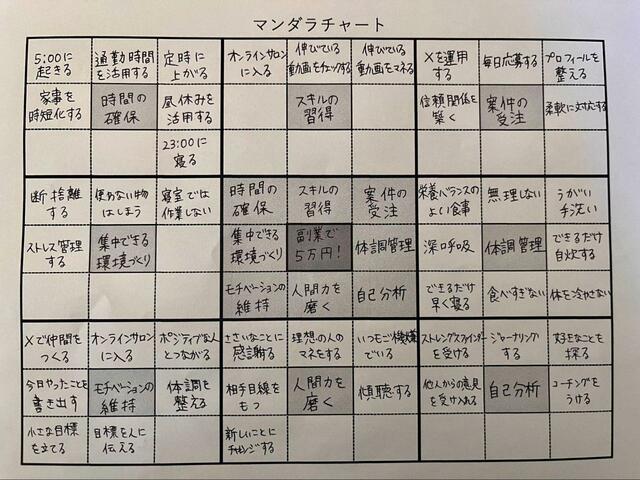 マンダラチャート
5:00に 通勤時間 定時に オンラインサロン 伸びている 伸びている Xを運用 毎日応募する プロフィールを
起きる を活用する 上がる に入る 動画をチェックする 動画をマネる する 整える
家事を 時間の 昼休みを スキルの 信頼関係を 案件の 柔軟に対応する
時短化する 確保 活用する 習得 築く 受注
23:00に
寝る
断捨離 使わない物は 寝室では 時間の スキルの 案件の 栄養バランスの 無理しない うがい
する しまう 作業しない 確保 習得 受注 よい食事 手洗い
ストレス管理 集中できる 集中できる 副業で 体調管理 深呼吸 体調管理 できるだけ
する 環境づくり 環境づくり 5万円! 自炊する
モチベーションの 人間力を 自己分析 できるだけ 食べすぎない 体を冷やさない
維持 磨く 早く寝る
Xで仲間を オンラインサロン ポジティブな人 ささいなことに 理想の人の いつもご機嫌 ストレングスファインダー ジャーナリング 好きなことを
つくる に入る とつながる 感謝する マネをする でいる を受ける する 探る
今日やったことを モチベーションの 体調を 相手目線を 人間力を 傾聴する 他人からの意見 自己分析 コーチングを
書き出す 維持 整える もつ 磨く を受け入れる うける
小さな目標 目標を人に 新しいことに
を立てる 伝える チャレンジする